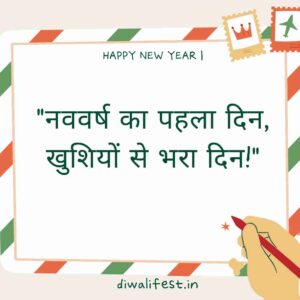 HAPPY NEW YEAR |
"नववर्ष का पहला दिन,
खुशियों से भरा दिन!"
diwalifest.in